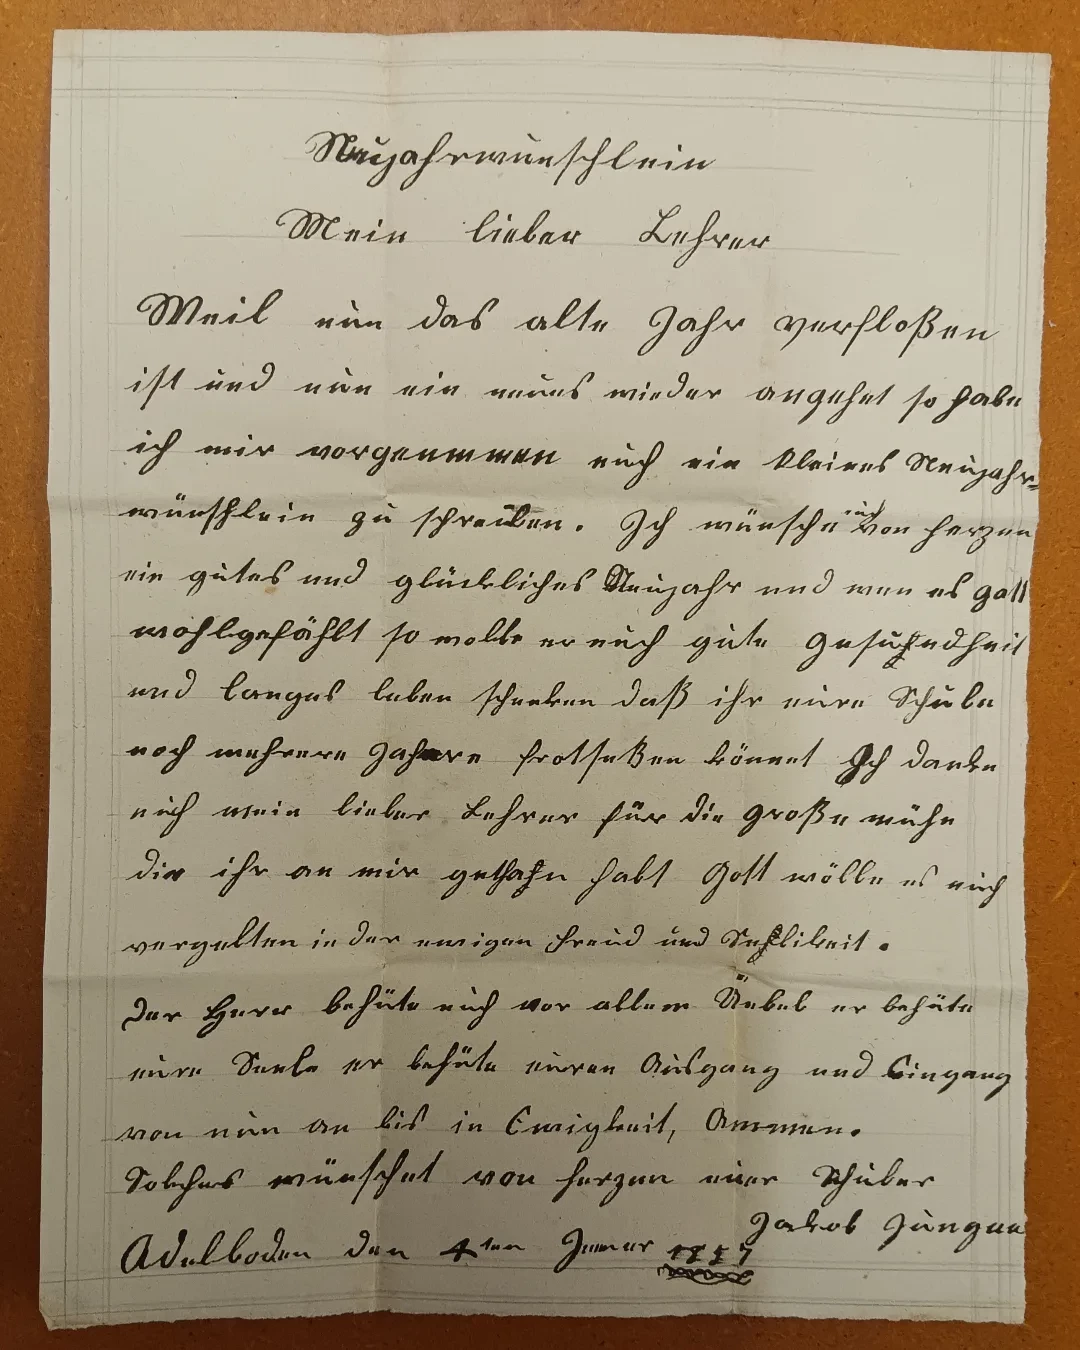 Neujahrwunschlein
Mein lieber Lehrer
Weil nun das alte Jahr verfloßen
ist und nun ein neues wieder angehet so habe
ich mir vorgenommen euch ein kleines Neujahr=
wünschlein zu schreiben. Ich wünsche euch von herzen
ein gutes und glückliches Neujahr und wen es gott
wohlgefählt so wolle er euch gute Gesundheit
und langes leben schenken daß ihr eure Schule
noch mehrere Jahre frotsetzen könnet Ich danke
euch mein lieber Lehrer für die große mühe
die ihr an mir gethahn habt Gott wölle es euch
vergelten in der ewigen freud und Sehlikeit.
Der Herr behüte euch vor allem Üebel er behüte
eure Seele er behüte euren Ausgang und Eingang
von nun an bis in Ewigkeit, Ammen.
Solches wünschet von herzen euer Schuler
Jakob Jungen
Adelboden den 4ten Jenner 1857